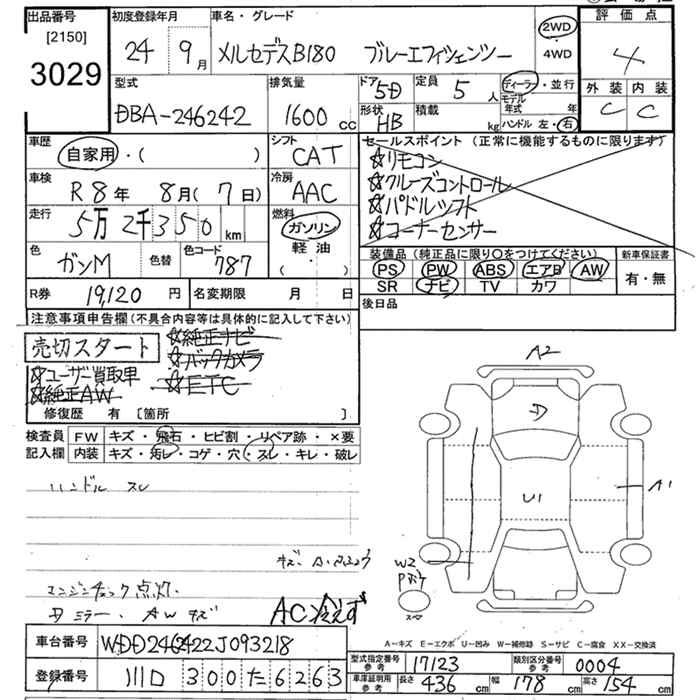 出品番号 [2150] 3029
初度登録年月 24年 9月
車名・グレード メルセデスB180 ブルーエフィシェンシー
2WD・4WD
評価点 4
外装 C 内装 C
型式 DBA-246242
排気量 1600 cc
ドア 5D 定員 5人
形状 HB 積載 kg
ディーラー・並行
モデル年式 年
ハンドル 左・右
車歴 自家用・( )
シフト CAT
車検 R8年 8月(7日)
冷房 AAC
走行 5万2千350 km
燃料 ガソリン・軽油・( )
色 ガンM 色替 色コード 787
R券 19,120円 名変期限 月 日
セールスポイント(正常に機能するものに限ります)
☆リモコン
☆クルーズコントロール
☆パドルシフト
☆コーナーセンサー
装備品(純正品に限り○をつけてください) 新車保証書
PS PW ABS エアB AW 有・無
SR ナビ TV カワ
後日品
注意事項申告欄(不具合内容等は具体的に記入して下さい)
売切スタート
☆純正ナビ
☆バックカメラ
☆ETC
☆ユーザー買取車
☆純正AW
修復歴 有 [箇所 ]
検査員 記入欄
FW キズ・飛石・ヒビ割・リペア跡・×要
内装 キズ・汚レ・コゲ・穴・スレ・キレ・破レ
ハンドル スレ
エンジンチェック点灯.
ミラー. AWキズ
AC冷えず
A2
U1
A1
W2
A-キズ E-エクボ U-凹み W-補修跡 S-サビ C-腐食 XX-交換済
車台番号 WDD2462422J093218
登録番号 300た6263
型式指定番号 参考 17123 類別区分番号 参考 0004
車庫証明用 参考 長さ 436 cm 幅 178 cm 高さ 154 cm